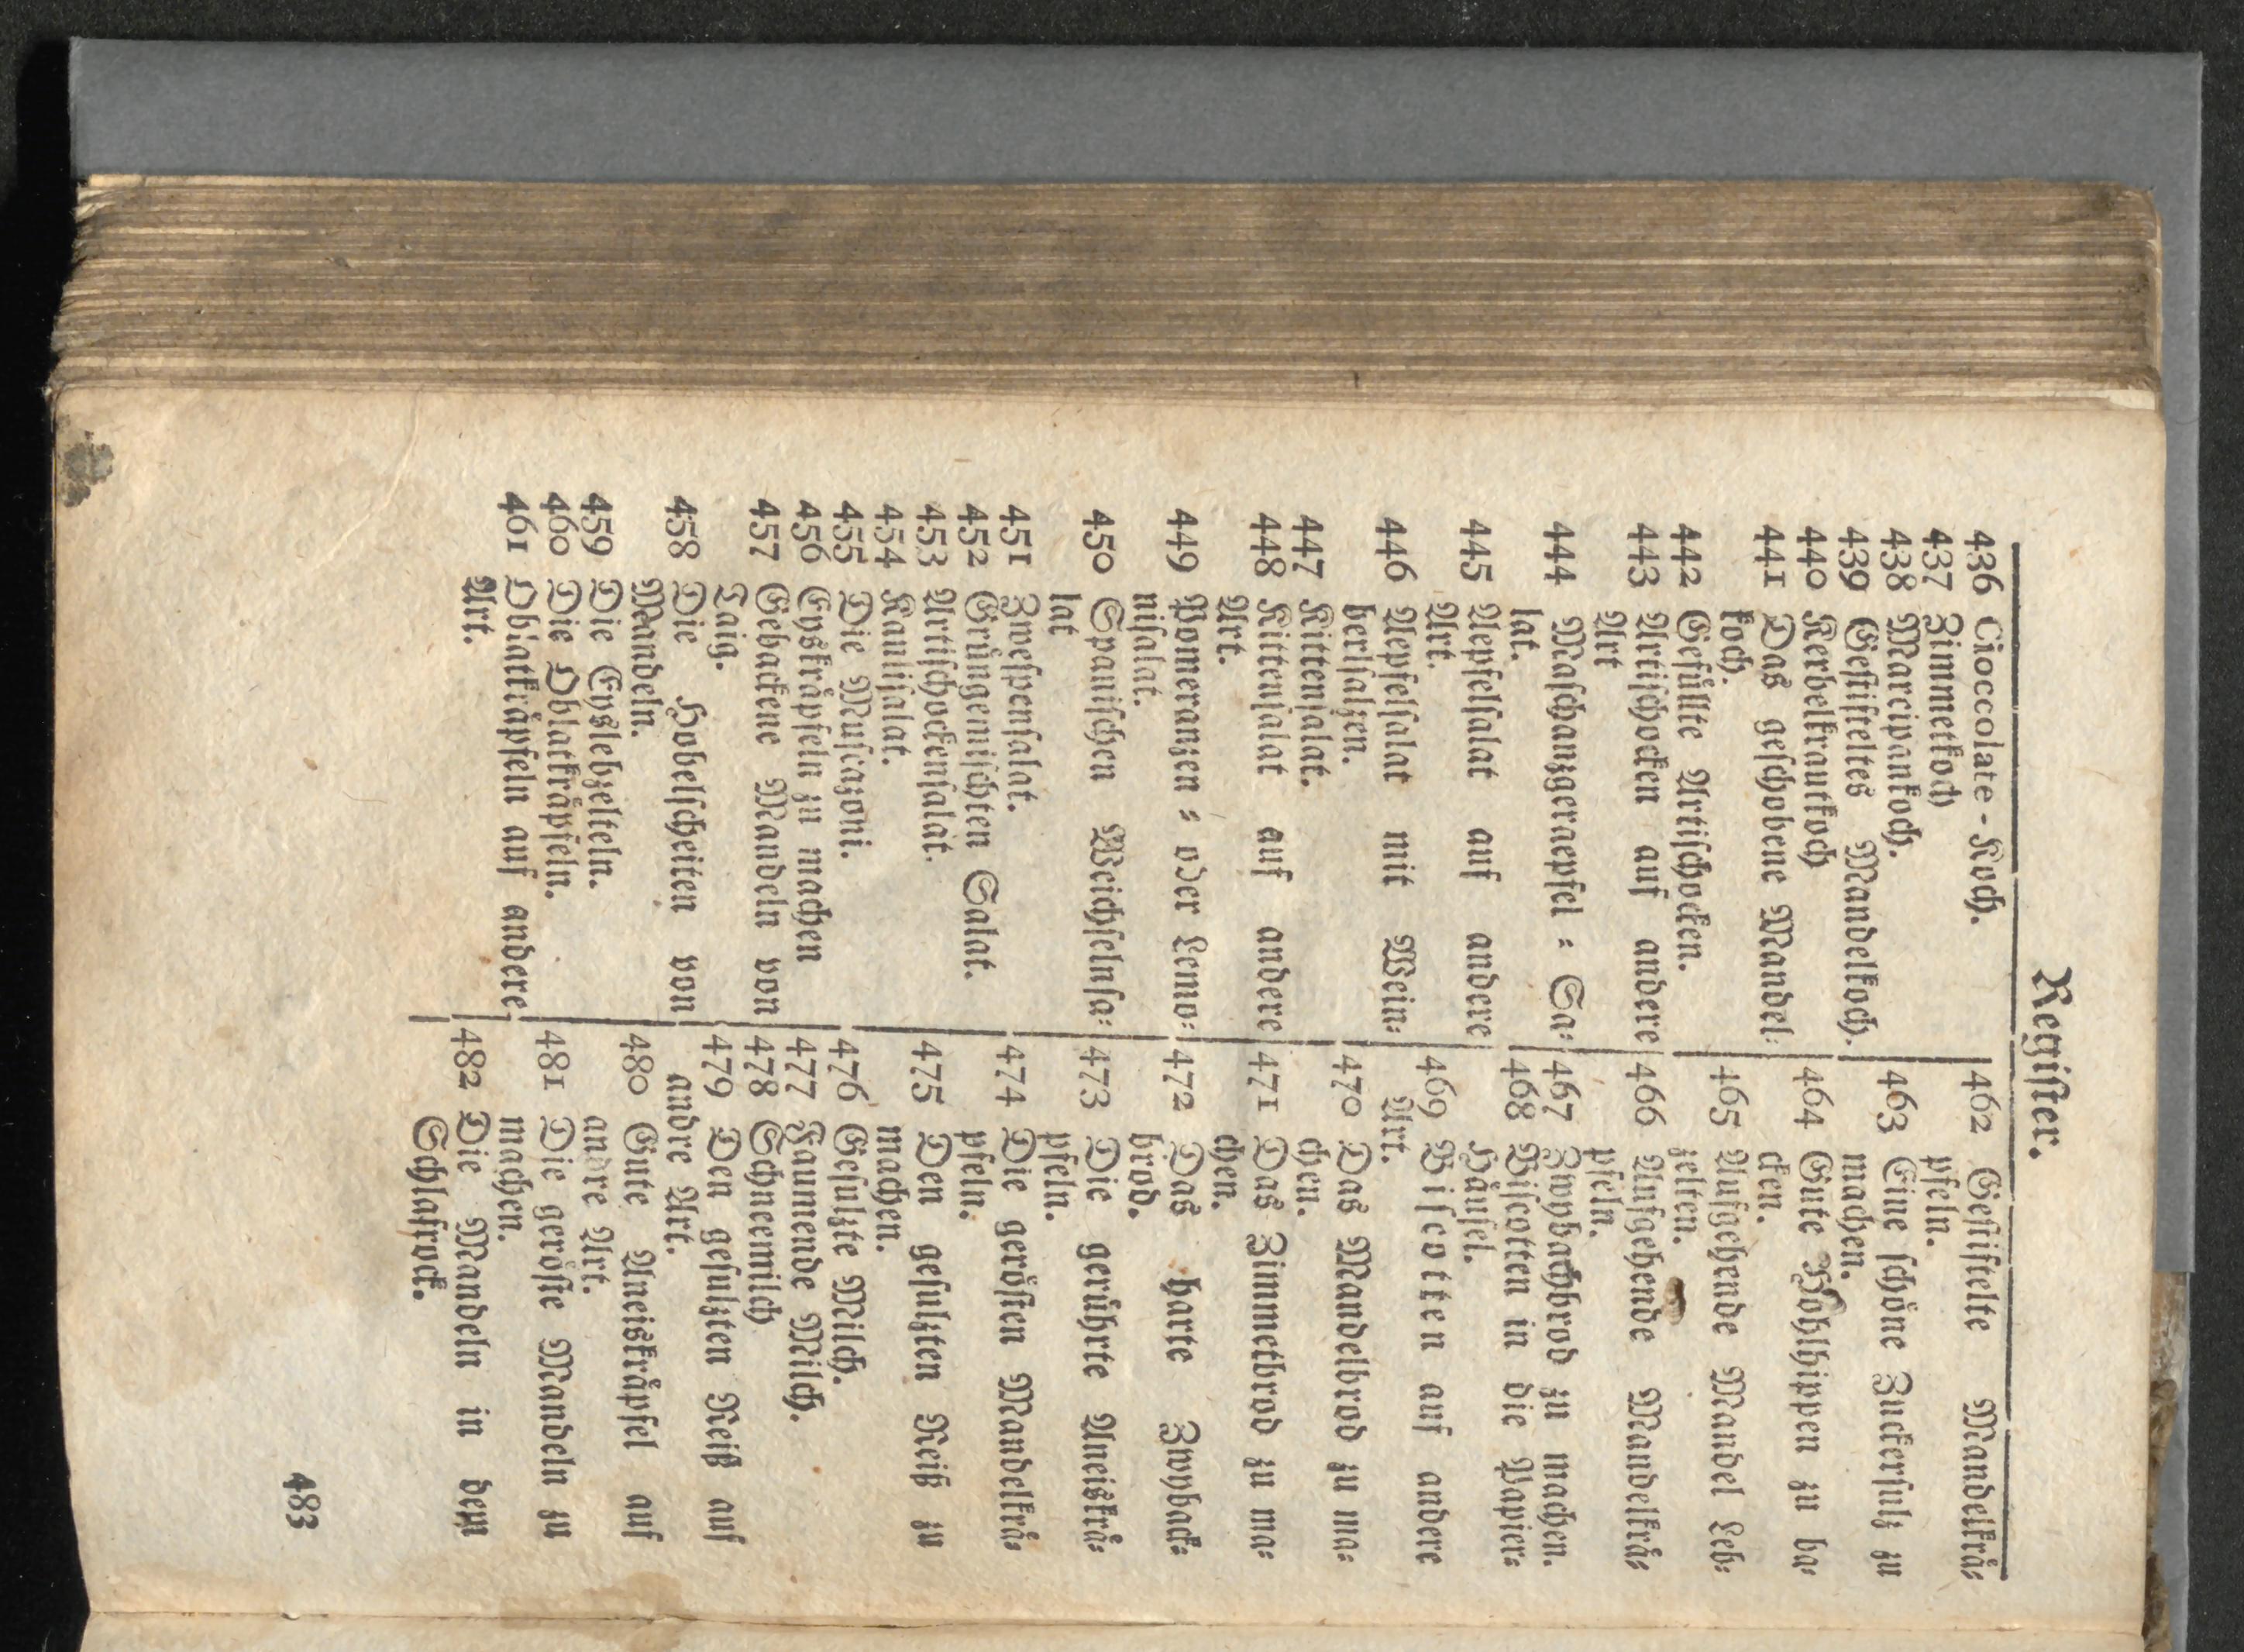 Regiſter.
436 Cioccolate-Koch.
437 Zimmetkoch
438 Marcipankoch.
439 Geſtifteltes Mandelkoch.
440 Kerbelkrautkoch
441 Das geſchobene Mandel⸗
koch.
442 Gefuͤllte Artiſchocken.
443 Artiſchocken auf andere
Art
444 Maſchanzgeraepfel⸗Sa⸗
lat.
445 Aepfelſalat auf andere
Art.
446 Aepfelſalat mit Wein⸗
berlſalzen.
447 Kittenſalat.
448 Kittenſalat auf andere
Art.
449 Pomeranzen⸗oder Lemo⸗
niſalat.
450 Spaniſchen Weichſelnſa⸗
lat
451 Zweſpenſalat.
452 Gruͤngemiſchten Salat.
453 Artiſchockenſalat.
454 Kauliſalat.
455 Die Muſcazoni.
456 Eyskraͤpfeln zu machen
457 Gebackene Mandeln von
Taig.
458 Die Hobelſcheiten von
Mandeln.
459 Die Eyslebzelteln.
460 Die Oblatkraͤpfeln.
461 Oblatkraͤpfeln auf andere
Art.
462 Geſtiftelte Mandelkraͤ⸗
pfeln.
463 Eine ſchoͤne Zuckerſulz zu
machen.
464 Gute Hohlhippen zu ba⸗
cken.
465 Aufgehende Mandel Leb⸗
zelten.
466 Aufgehende Mandelkraͤ⸗
pfeln.
467 Zwybachbrod zu machen.
468 Biſcotten in die Papier⸗
Haͤuſel.
469 Biſcotten auf andere
Art.
470 Das Mandelbrod zu ma⸗
chen.
471 Das Zimmetbrod zu ma⸗
chen.
472 Das harte Zwyback⸗
brod.
473 Die geruͤhrte Aneiskraͤ⸗
pfeln.
474 Die geroͤſten Mandelkraͤ⸗
pfeln.
475 Den geſulzten Reiß zu
machen.
476 Geſulzte Milch.
477 Faumende Milch.
478 Schneemilch
479 Den geſulzten Reiß auf
andre Art.
480 Gute Aneiskraͤpfel auf
andre Art.
481 Die geroͤſte Mandeln zu
machen.
482 Die Mandeln in dem
Schlafrock.
483